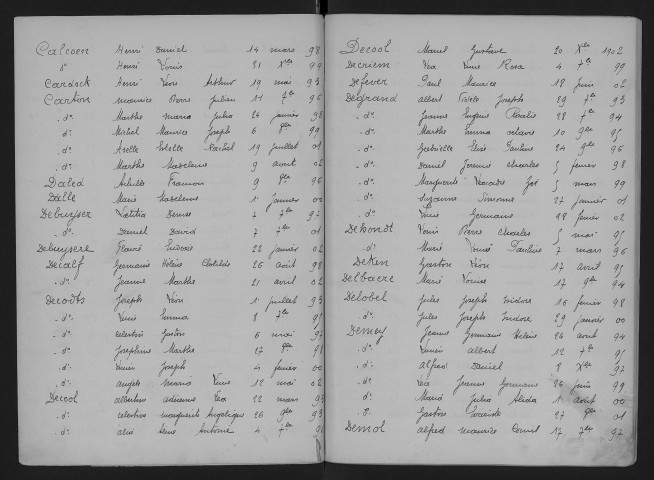 Calcoen Henri Daniel 14 mars 98
d° Henri Louis 21 Xbre 99
Cardick Henri Léon Arthur 19 mai 93
Carton Maurice Pierre Julien 11 7bre 96
d° Marthe Maria Julia 26 janvier 98
d° Michel Maurice Joseph 6 99
d° Estelle Rachel 19 juillet 01
d° Marthe Madeleine 9 août 02
Daled Achille François 9 9bre 96
Dalle Marie Madeleine 1 janvier 00
Debuyser Laetitia Denise 7 7bre 97
d° Daniel David 7 7bre 01
Debuysere 22 janvier 02
Decalf Germaine Hélène Clotilde 26 août 98
d° Jeanne Marthe 21 avril 02
Decodts Joseph Léon 1 juillet 93
d° Emma 8 7bre
d° Célestin Gaston 6 mai 97
d° Joséphine Marthe 27
d° Joseph 4 février 00
d° Angèle 12 mai 02
Decool Albertine Adrienne Léa 22 mars 93
d° Célestine Marguerite Angélique 26 9bre 93
d° Antoine 4 7bre
Decool Marcel Gustave 20 Xbre 1902
Decriem Léa Rosa 4 7bre 99
Defever Paul Maurice 18 juin 02
Degrand Albert Joseph 29 7bre 93
d° Jeanne Eugénie Rosalie 28 7bre 94
d° Marthe Emma Octavie 10 9bre 95
d° Gabrielle Elise Pauline 24 9bre 96
d° Daniel Jérémie Charles 5 février 98
d° Marguerite 5 mars 99
d° Suzanne Simonne 27 janvier 01
d° Germaine 18 02
Dehondt Pierre Charles 5 mai 95
d° Marie Louise Pauline 7 mars 96
Deken Gaston Léon 17 avril 95
Delbaere Marie Louise 17 9bre 94
Delobel Jules Joseph Isidore 16 février 98
d° Jules Joseph Isidore 29 janvier 00
Demey Jeanne Germaine Hélène 26 août 94
d° Lucien Albert 12 7bre 95
d° Alfred Daniel 8 Xbre 97
d° Léa Jeanne Germaine 26 juin 99
d° Marie Julia Alida 1 août 00
d° Gaston 27 9bre 01
Demol Alfred Maurice Cornil 17 7bre 97